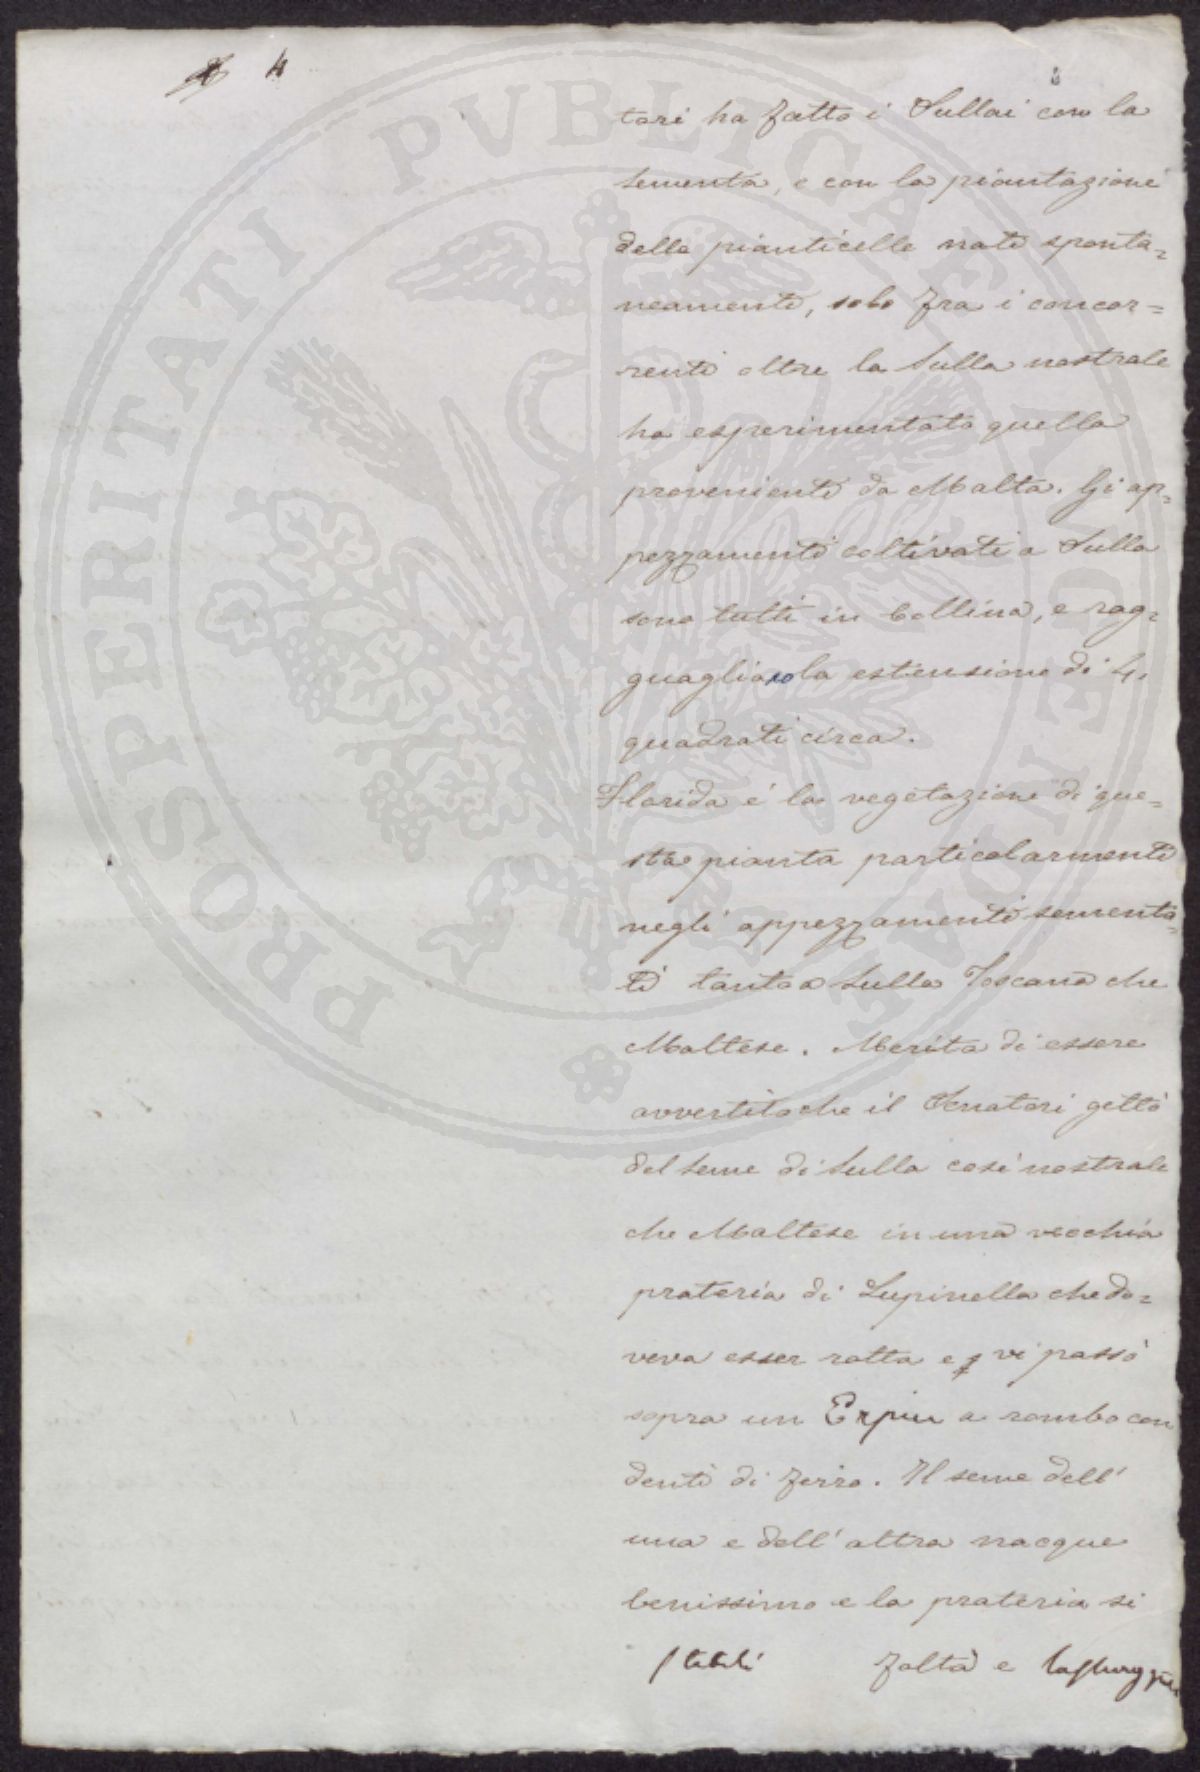 4
tori ha fatto i Sullai con la
sementa, e con la piantazione
delle pianticelle nate sponta=
neamente, solo fra i concor=
renti oltre la Sulla nostrale
ha esperimentato quella
proveniente da Malta. Gi ap=
pezzamenti coltivati a Sulla
sono tutti in Collina, e rag=
guagliano la estensione di 4.
quadrati circa.
Florida é la vegetazione di que=
sta pianta particolarmente
negli appezzamenti sementa=
ti tanto a Sulla Toscana che
Maltese. Merita di essere
avvertito che il Senatori gettò
del seme di Sulla cosi nostrale
che Maltese in una vecchia
prateria di Lupinella che do=
veva esser rotta e vi passò
sopra un Erpice a rombo con
denti di ferro. Il seme dell'
una e dell'altra nacque
benissimo e la prateria si
stabilì folta e
PROSPERITATI PVBLICAE AVGENDAE